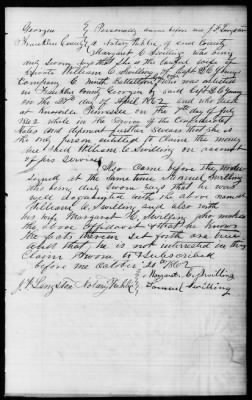 Georgia } Personally came before me J. F. Langston
Franklin County } a Notary Public of said County
Margaret C. Swilling who being
duly sworn says that she is the lawful wife of
private William C. Swilling of Capt
Company C Battallion who was enlisted
in Franklin County Georgia by said Capt
on the day of April 1862 and who died
at Knoxville Tennessee on the day of July
1862 while in the Service of the Confederate
States and deponent further swears that she is
the only person entitled to claim the money
due said William C. Swilling on account
of his services
Also came before the
signed at the same time Samuel Swilling
who being duly sworn says that he was
well acquainted with the above named
William C. Swilling and also with
his wife Margaret C. Swilling who makes
the above affidavit & that he knows
the facts therein set forth are true
and that he is not interested in this
claim Sworn to & subscribed
before me October 1862
Margaret C. Swilling
J. F. Langston Notary Public } Samuel Swilling